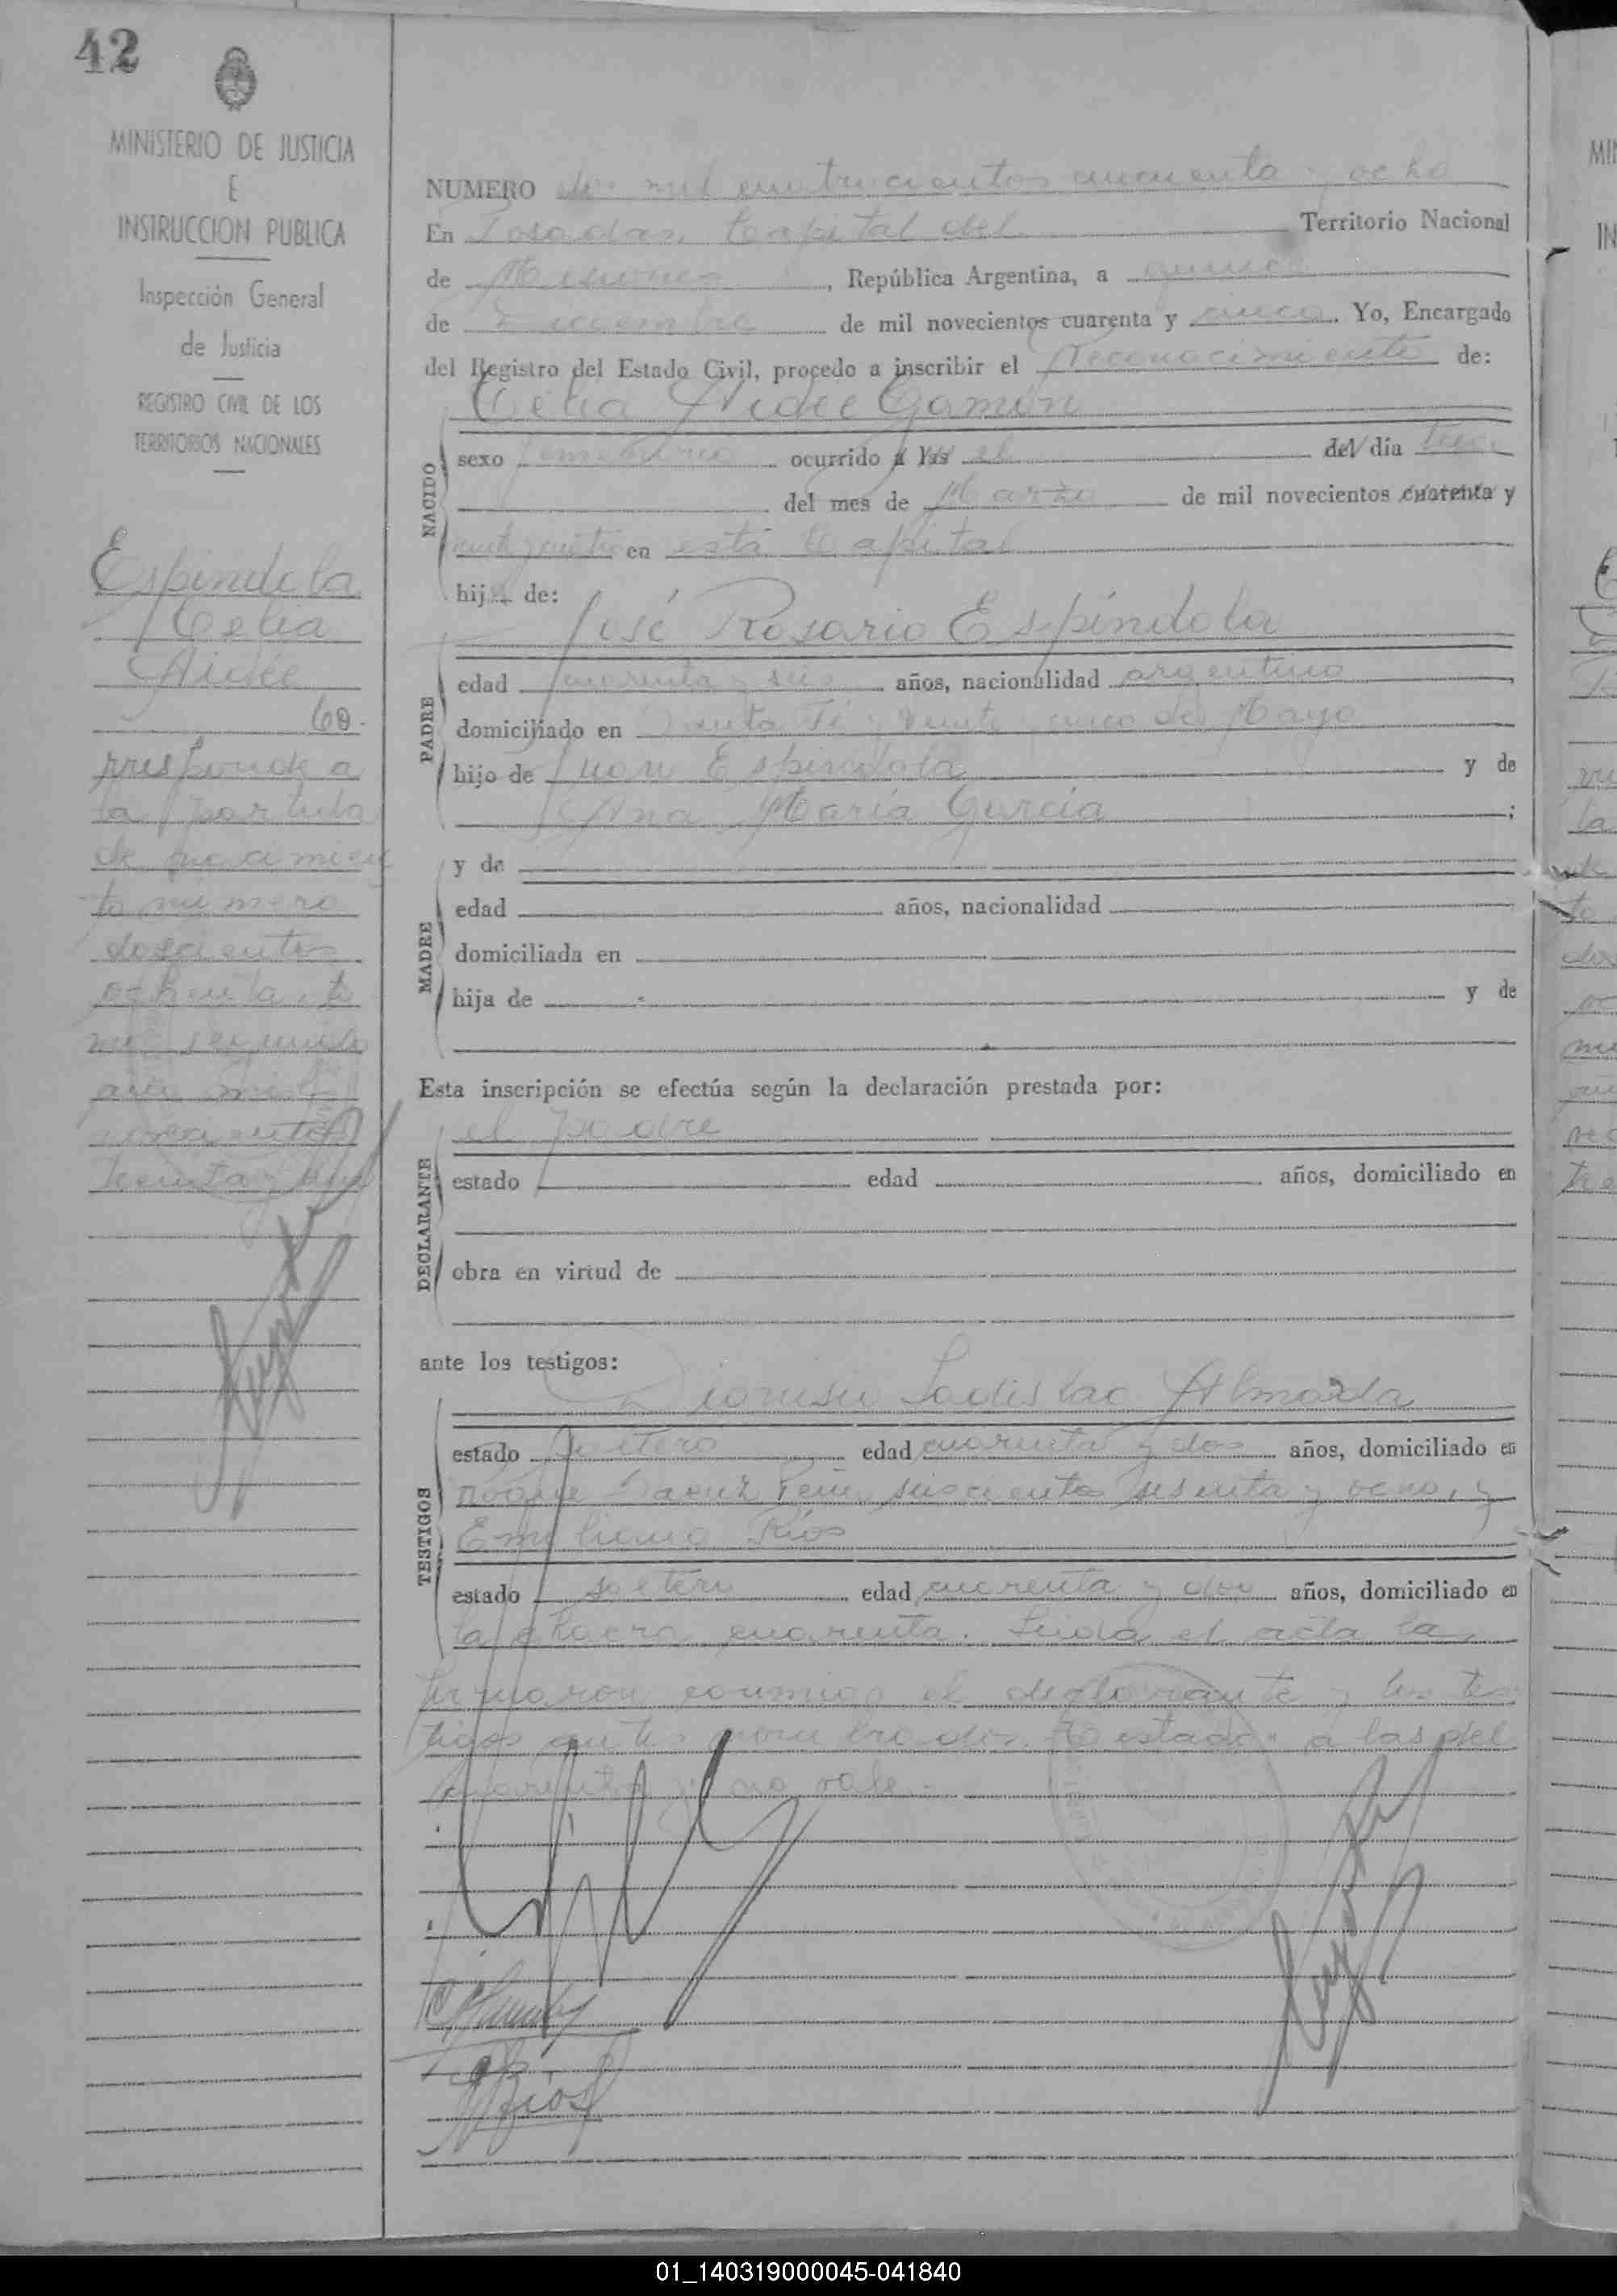 42
MINISTERIO DE JUSTICIA
E
INSTRUCCION PUBLICA
Inspección General
de Justicia
REGISTRO CIVIL DE LOS
TERRITORIOS NACIONALES
Espíndola
Celia
Aidée
Co-
rresponde a
la partida
de nacimien
to número
doscientos
ochenta, to
mo segundo
año mil
novecientos
treinta y
NUMERO dos mil cuatrocientos cincuenta y ocho
En Posadas, Capital del Territorio Nacional
de Misiones, República Argentina, a quince
de Diciembre de mil novecientos cuarenta y cinco. Yo, Encargado
del Registro del Estado Civil, procedo a inscribir el Reconocimiento de:
Celia Aidée Gamón
NACIDO
sexo femenino ocurrido a las el del día
del mes de Marzo de mil novecientos cuarenta y
en esta Capital
hij de:
José Rosario Espíndola
PADRE
edad cuarenta y seis años, nacionalidad argentino
domiciliado en Santa Fé y Veinte y cinco de Mayo
hijo de Juan Espíndola y de
Ana María García ;
MADRE
y de
edad años, nacionalidad
domiciliada en
hija de y de
Esta inscripción se efectúa según la declaración prestada por:
el padre
DECLARANTE
estado edad años, domiciliado en
obra en virtud de
ante los testigos:
Dionisio Ladislao Almada
TESTIGOS
estado soltero edad cuarenta y dos años, domiciliado en
Roque Saenz Peña seiscientos sesenta y ocho, y
Emiliano Ríos
estado soltero edad cuarenta y dos años, domiciliado en
la chacra cuarenta. Leída el acta la
firmaron conmigo el declarante y los tes
tigos antes nombrados. Testado: a las del
cuarenta y: no vale.-
Ríos
01_140319000045-041840